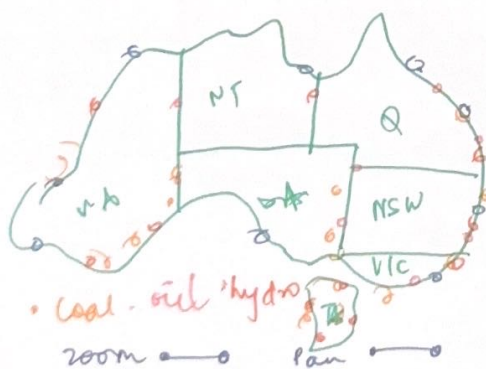 NT
Q
WA
SA
NSW
VIC
coal - oil hydro
TA
zoom Pan